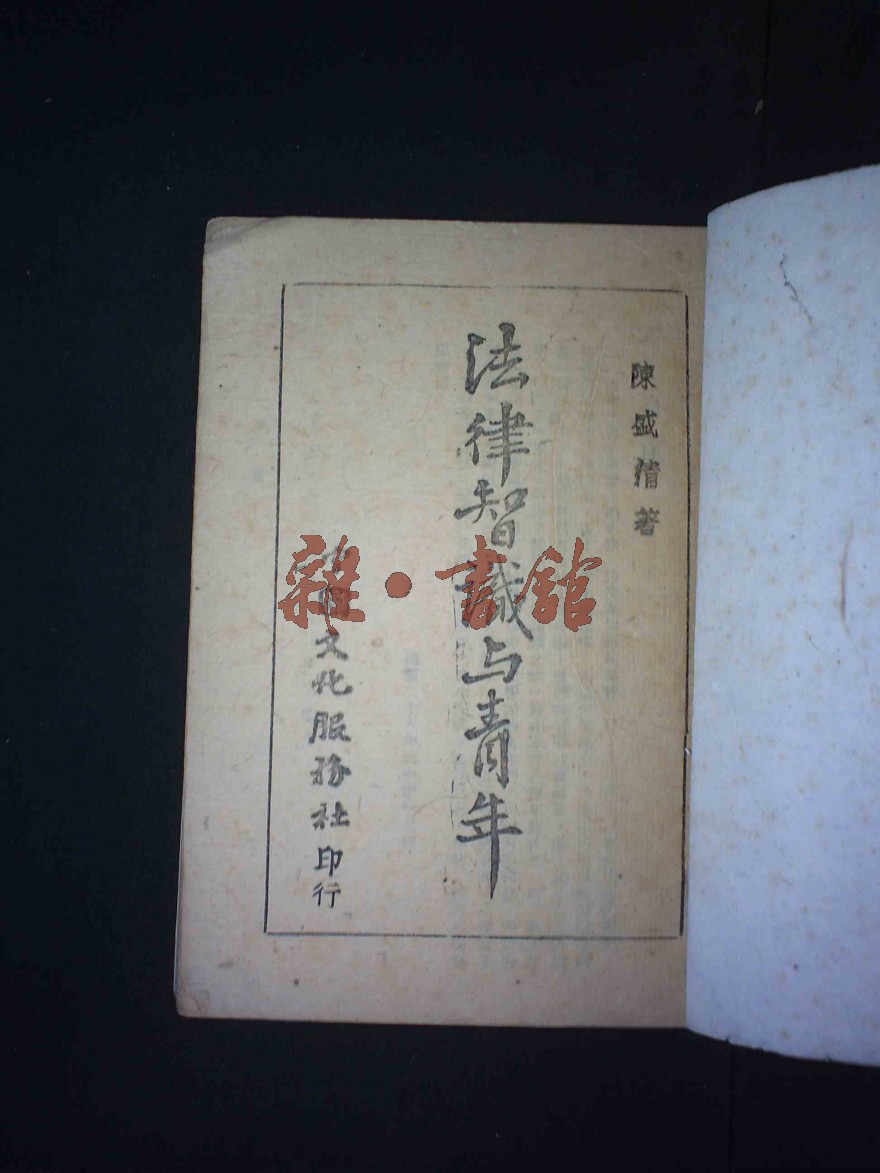 陳盛清著
法律智識与青年
中國文化服務社印行
雜·書舘